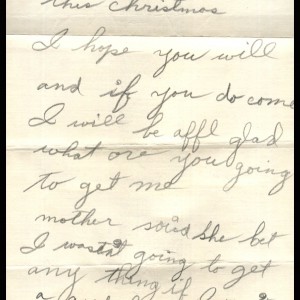 this christmas
I hope you will
and if you do come
I will be affl glad
what are you going
to get me
mother said she bet
I wasnt going to get
any thing if I